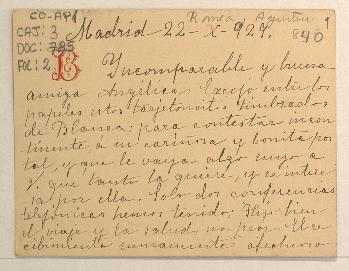 CO-AP/
CAJ: 3
DOC: 785
FOL: 2
Romea Agustín
1
840
Madrid 22-X-927.
B
Incomparable y buena
amiga Angélica: Escojo entre los
papeles estos tarjetoncitos timbrados
de Blanca; para contestar incon
tinente a su cariñosa y bonita pos
tal, y que le vaya algo suyo a
V. que tanto la quiere, y se intere
sa por ella. Solo dos conferencias
telefónicas hemos tenido; Hizo bien
el viaje y la salud, no peor. El re
cibimiento sumamente afectuoso